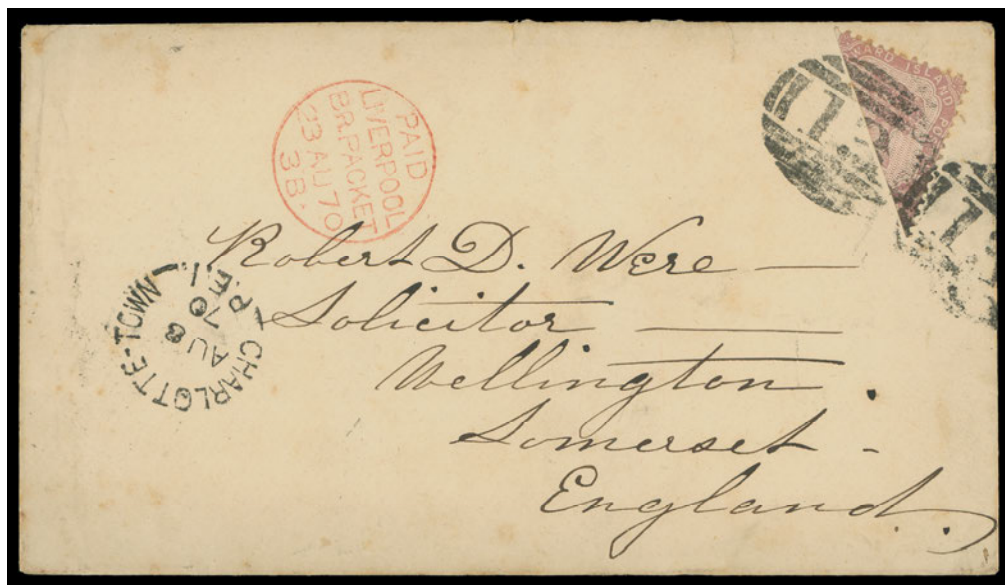 WARD ISLAND PO
172
17
PAID
LIVERPOOL
BR.PACKET
23 AU 70
3B.
CHARLOTTE-TOWN
P.E.I.
AU 8
70
Robert D. Were —
Solicitor —
Wellington.
Somerset -
England.